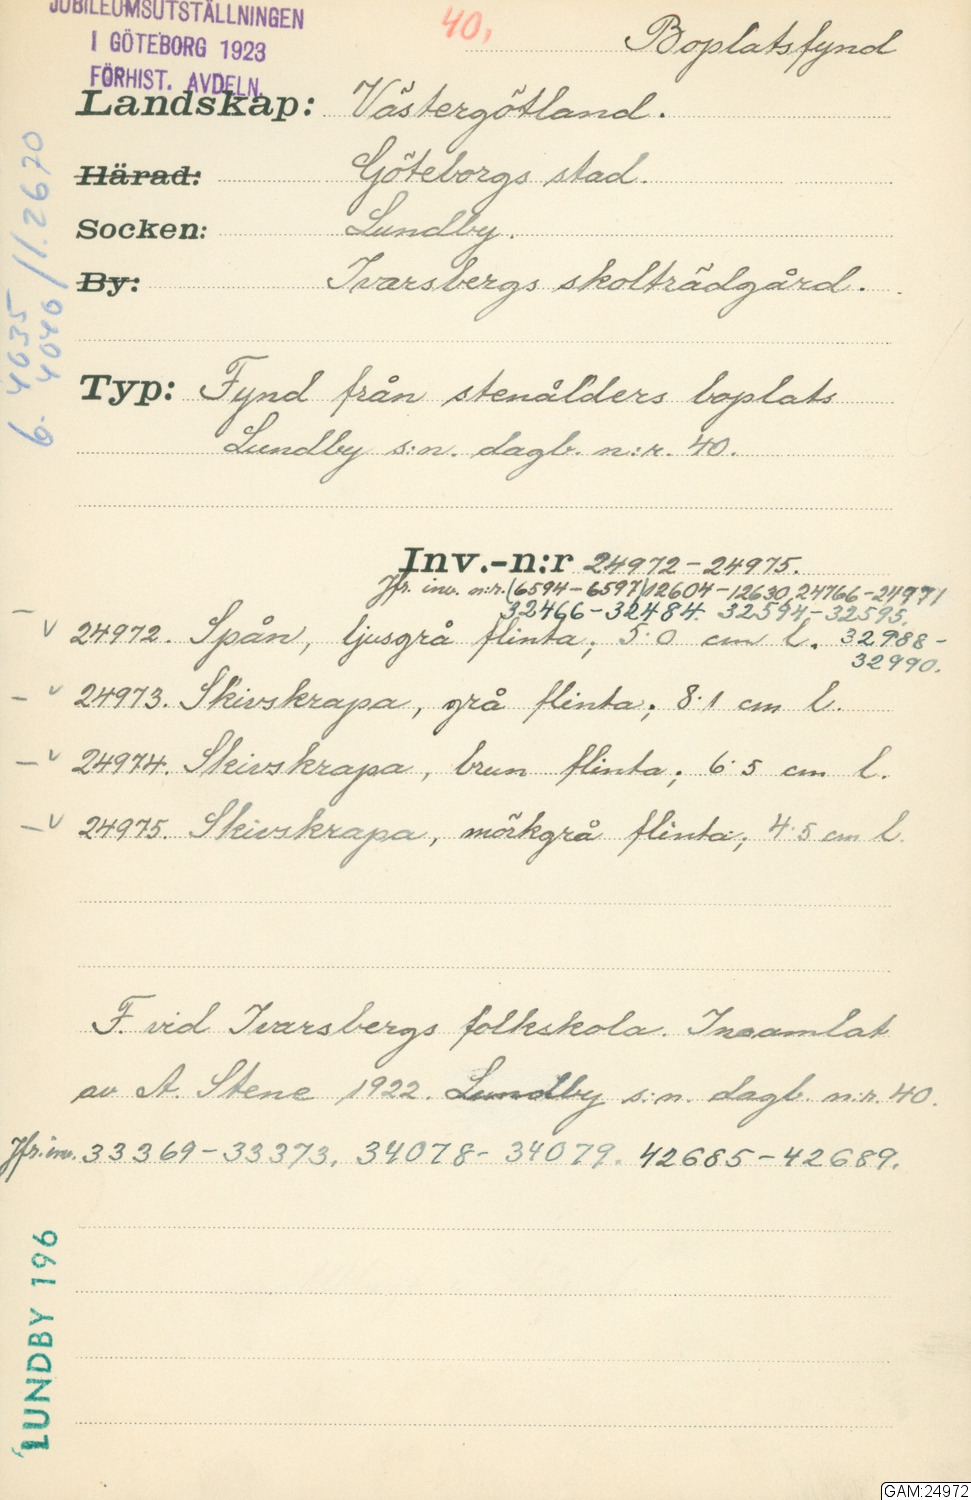 JUBILEUMSUTSTÄLLNINGEN
I GÖTEBORG 1923
FÖRHIST. AVDELN.
40,
Boplatsfynd
Landskap: Västergötland.
Härad: Göteborgs stad.
Socken: Lundby.
By: Ivarsbergs skolträdgård.
Typ: Fynd från stenålders boplats
Lundby s:n. dagb. n:r. 40.
Inv.-n:r 24972-24975.
Jfr. inv. n:r. (6594-6597) 12604-12630, 24766-24971
32466-32484. 32594-32595.
32988-
32990.
- v 24972. Spån, ljusgrå flinta; 5:0 cm l.
- v 24973. Skivskrapa, grå flinta; 8:1 cm l.
- v 24974. Skivskrapa, brun flinta; 6:5 cm l.
- v 24975. Skivskrapa, mörkgrå flinta; 4:5 cm l.
F. vid Ivarsbergs folkskola. Insamlat
av A. Stene 1922. Lundby s:n. dagb. n:r. 40.
Jfr. inv. 33369-33373, 34078-34079. 42685-42689.
6- 4635
4040/11.2670
LUNDBY 196
GAM:24972